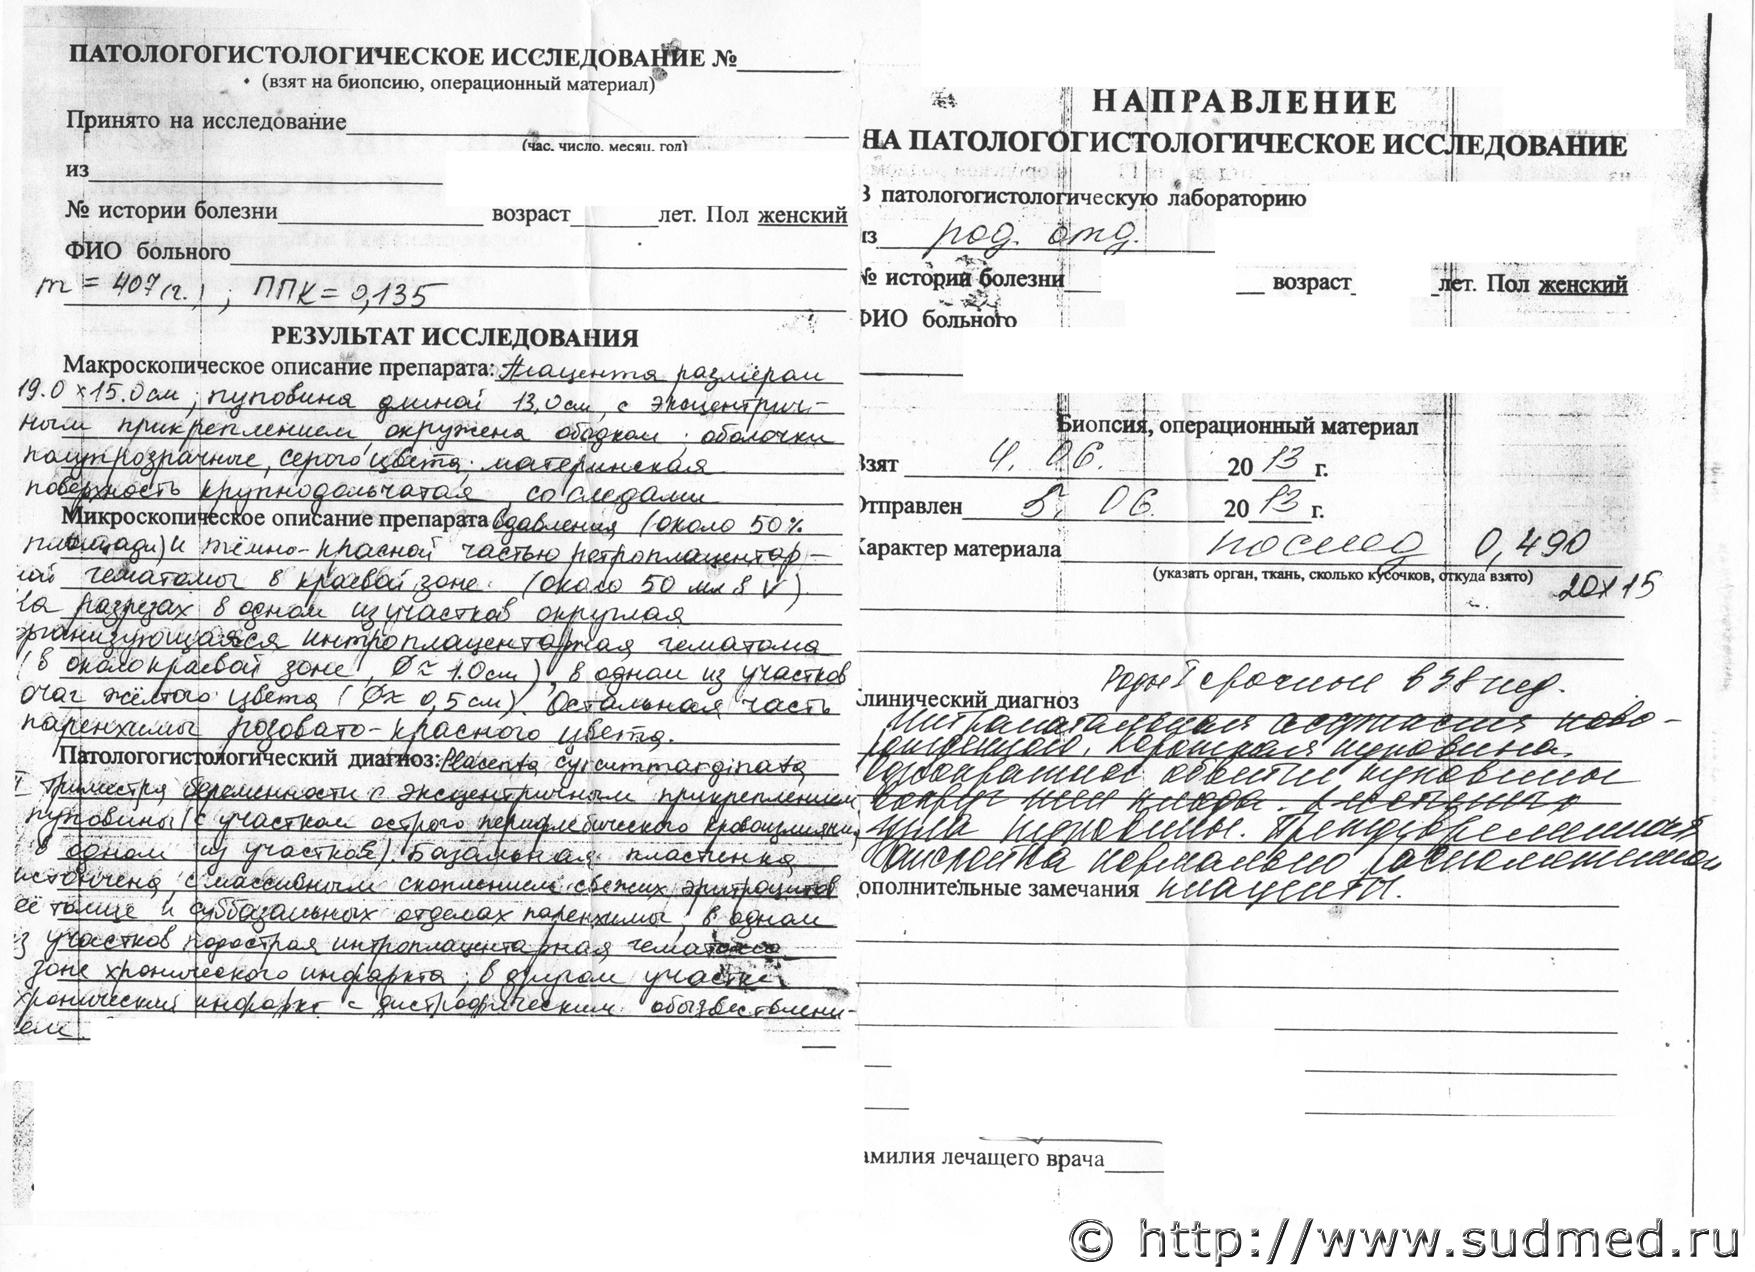 ПАТОЛОГОГИСТОЛОГИЧЕСКОЕ ИССЛЕДОВАНИЕ №
(взят на биопсию, операционный материал)
Принято на исследование
(час, число, месяц, год)
из
№ истории болезни возраст лет. Пол женский
ФИО больного
m = 407 (г.) ; ППК = 0,135
РЕЗУЛЬТАТ ИССЛЕДОВАНИЯ
Макроскопическое описание препарата: Плацента размерам
19.0 × 15.0 см, пуповина длиной 13,0 см, с эксцентрич-
ным прикреплением, окружена ободком; оболочки
полупрозрачные, серого цвета; материнская
поверхность крупнодольчатая, со следами
Микроскопическое описание препарата вдавления (около 50%
площади) и тёмно-красной частью ретроплацентар-
ной гематомы в краевой зоне (около 50 мл в V).
На разрезах в одном из участков округлая
организующаяся интроплацентарная гематома
(в околокраевой зоне, ∅ ≈ 1.0 см), в одном из участков
очаг жёлтого цвета (∅ ≈ 0,5 см). Остальная часть
паренхимы розовато-красного цвета.
Патологогистологический диагноз: Placenta cyrcummarginata
Триместра беременности с эксцентричным прикреплением
пуповины (с участком острого перифлебического кровоизлияния
в одном из участков). Базальная пластинка
истончена, с массивным скоплением свежих эритроцитов
её толще и суббазальных отделах паренхимы, в одном
из участков подострая интроплацентарная гематома
зоне хронического инфаркта, в другом участке
хронический инфаркт с дистрофическим обызвествлени-
ем.
НАПРАВЛЕНИЕ
НА ПАТОЛОГОГИСТОЛОГИЧЕСКОЕ ИССЛЕДОВАНИЕ
В патологогистологическую лабораторию
из род. отд.
№ истории болезни возраст лет. Пол женский
ФИО больного
Биопсия, операционный материал
Взят 4. 06. 2013 г.
Отправлен 5. 06. 2013 г.
Характер материала послед 0,490
(указать орган, ткань, сколько кусочков, откуда взято)
20х15
Роды I срочные в 38 нед.
Клинический диагноз
Интранатальная асфиксия ново-
рожденного. Короткая пуповина.
обвитие пуповины
вокруг шеи плода.
узла пуповины. Преждевременная
отслойка нормально расположенной
дополнительные замечания плаценты.
амилия лечащего врача
© http://www.sudmed.ru